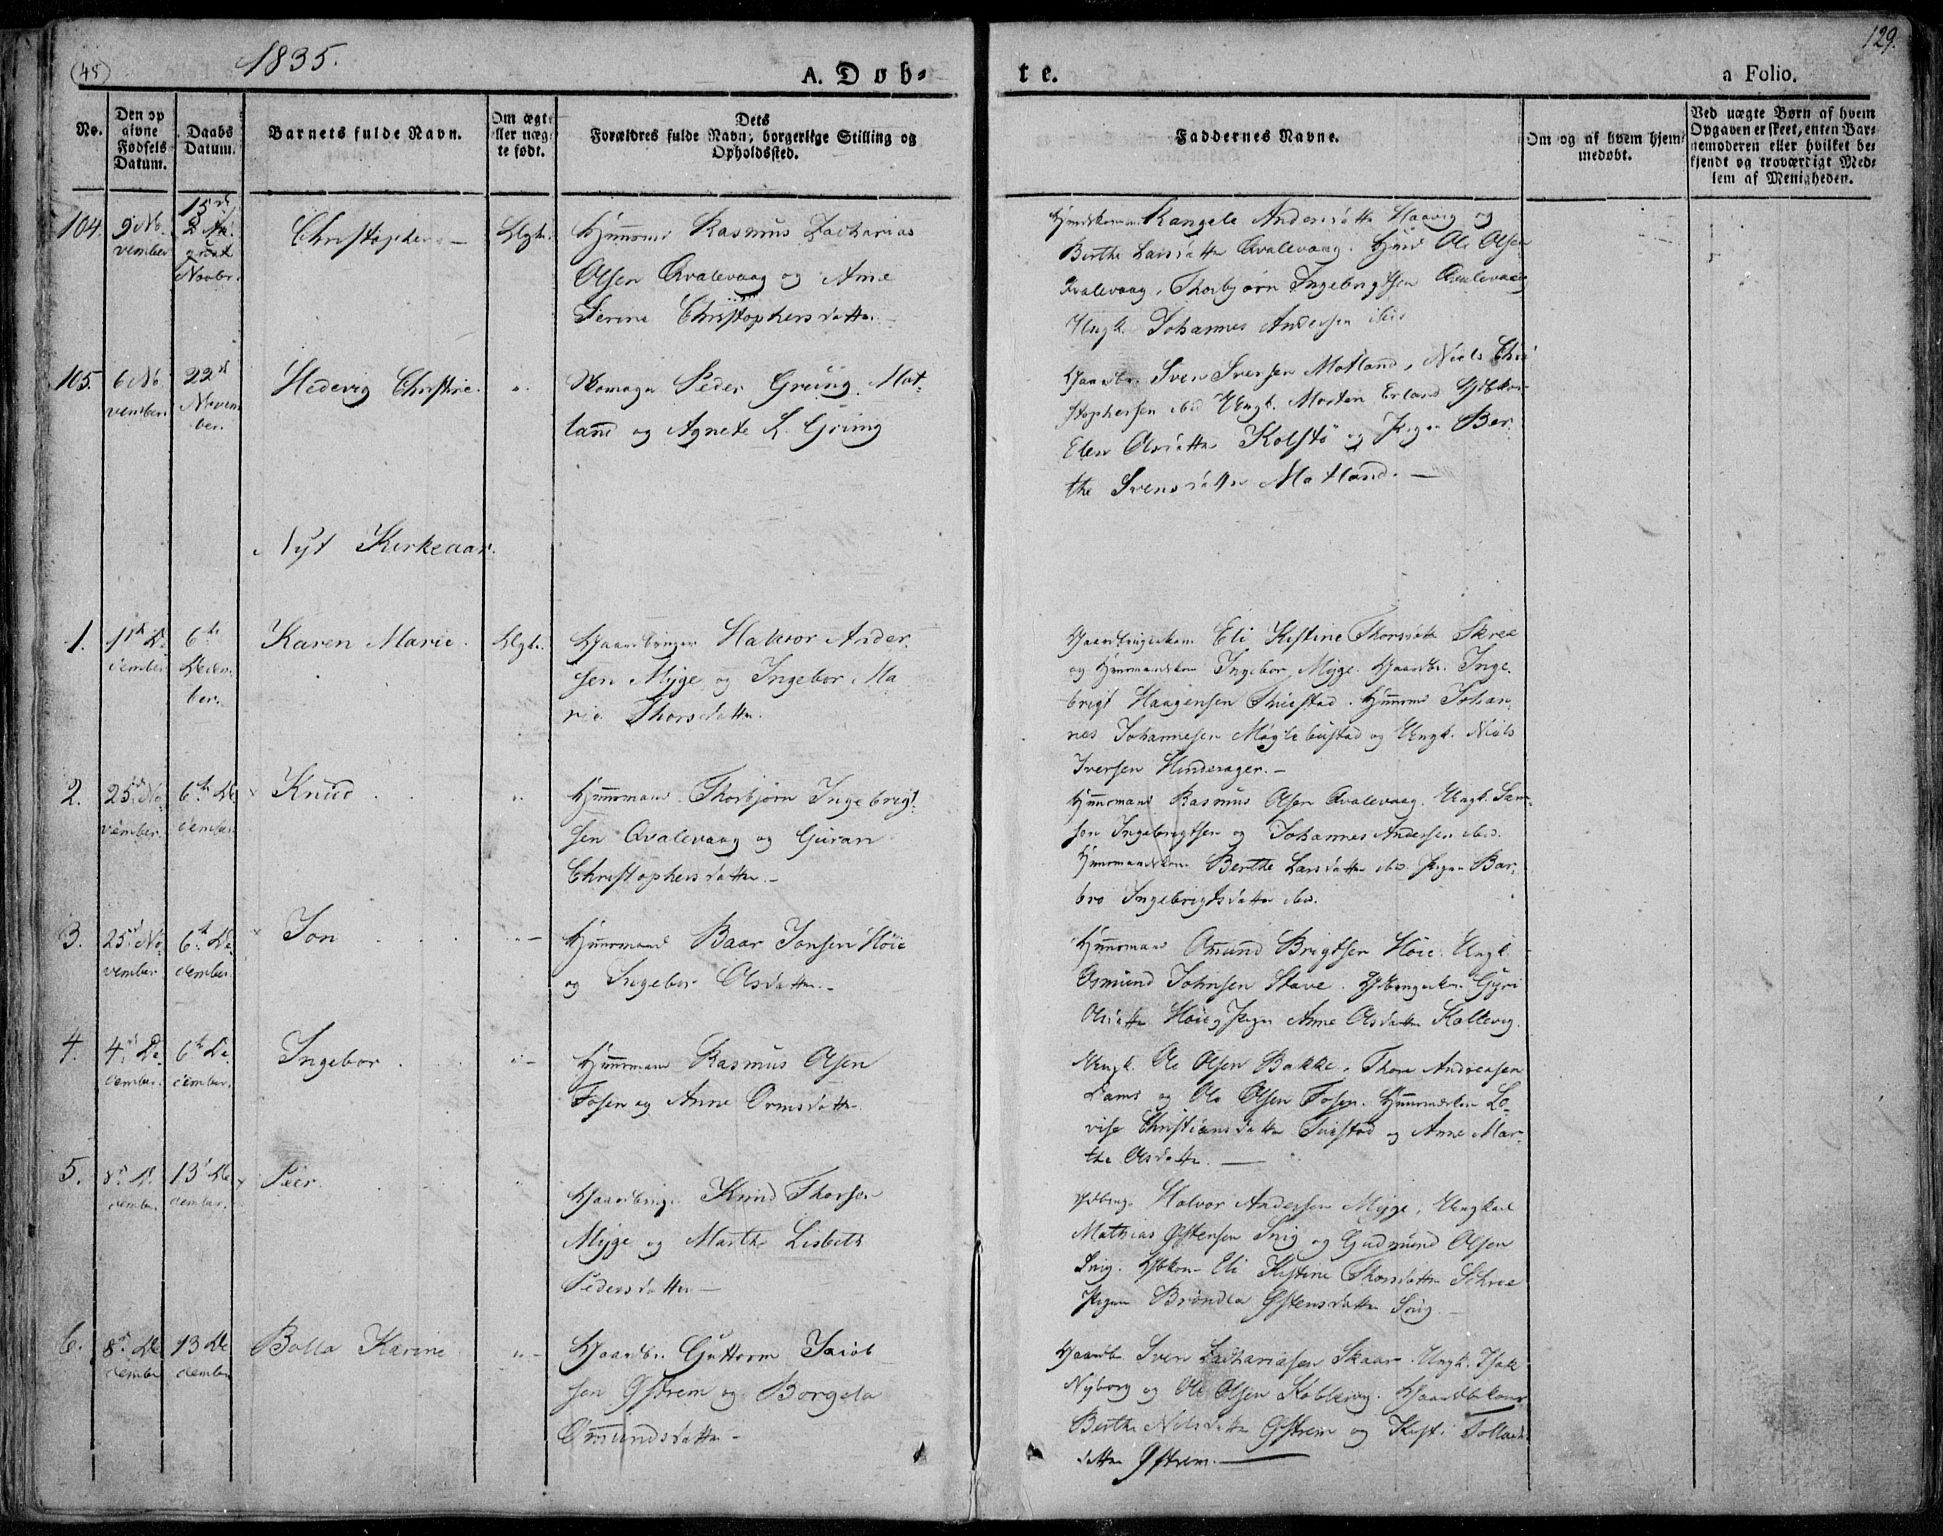 (45)
1835.
A. Döb-
te.
a Folio.
129.
No.
Den op
givne
Fødsels
Datum.
Daabs
Datum.
Barnets fulde Navn.
Om ægte
eller uæg-
te født.
Dets
Forældres fulde Navn, borgerlige Stilling og
Opholdssted.
Faddernes Navne.
Om og af hvem hjem-
medøbt.
Ved uægte Børn af hvem
Opgaven er skeet, enten Bar-
nemoderen eller hvilket be-
kjendt og troværdigt Med-
lem af Menigheden.
104.
9 No
vember
15de
Novbr.
Christopher
Ægte.
Huusmd Rasmus Zacharias
Olsen Qvalevaag og Ane
Serine Christophersdatter.
Huuskone Rangele Andersdatter Haavig og
Berthe Larsdatter Qvalevaag. Huusmd Ole Olsen
Qvalevaag, Thorbjørn Ingebrigtsen Qvalevaag
Ungk. Johannes Andersen ibid
105.
6 No
vember
22d
Novem
ber.
Hedevig Christine.
"
Peder Grung Mat-
land og Agnete L. Grung
Gaardbr. Sven Svensen Matland, Niels Chri
stophersen ibid Ungk. Morten Erland Gdbkone
Elen Olsdatter Kolstø og Pigen Ber-
the Svensdatter Matland. —
Nyt Kirkeaar.
1.
1ste De
cember
6te
Decem
ber.
Karen Marie.
Ægte.
Gaardbruger Halvor Ander-
sen Myge og Ingebor Ma
rie Thorsdatter.
Gaardbrugerkone Eli Kistine Thorsdatter Skree
og Huusmandskone Ingebor Myge. Gaardbr. Inge
brigt Haagensen Tuestad. Huusmd Johan-
nes Johannesen Møglebustad og Ungk. Niels
Iversen Hinderager. —
2.
25de No
vember.
6te De
cember
Knud
"
Huusmand Thorbjørn Ingebrigt-
sen Qvalevaag og Guran
Christophersdatter. —
Huusmand Rasmus Olsen Qvalevaag. Ungk. Sam-
son Ingebrigtsen og Johannes Andersen ibid.
Huusmandskone Berthe Larsdatter ibid Pigen Bar-
bro Ingebrigtsdatter ibid.
3.
25de No
vember
6te De
cember
Jon
" —
Huusmand Baar Jonsen Høie
og Ingebor Olsdatter. —
Huusmand Omund Brigtsen Høie. Ungk.
Osmund Johnsen Stave. Gdbrugerkone Gyri
Olsdatter Høie og Pigen Anne Olsdatter Kallevig.
4.
4de De
cember.
6te De
cember.
Ingebor
" —
Huusmand Rasmus Olsen
Fosen og Anne Ormsdatter.
Ungk. Ole Olsen Bakke, Thore Andreasen
Dams og Ole Olsen Fosen. Huusmandskone Lo-
vise Christiansdatter Tuestad og Anne Mar-
the Olsdatter. —
5.
8de De
cember
13de De
cember.
Peer
"
Gaardbruger Knud Thorsen
Myge og Marthe Lisbeth
Pedersdatter —
Gdbruger Halvor Andersen Myge, Ungkarl
Mathias Østensen Snig og Gudmund Olsen
Snig. Gdbkone Eli Kistine Thorsdatter Schree
Pigen Brøndla Østensdatter Snig. —
6.
8de De
cember
13 De
cember
Bolla Karine
" —
Gaardbr. Guttorm Jacob
sen Østrem og Borgela
Ommundsdatter —
Gaardbr Sven Zachariasen Skaar. Ungk. Isak
Nyborg og Ole Olsen Kobbevig. Gaardbrkone
Berthe Nilsdatter Østrem og Kisti Tollack
datter Østrem. —